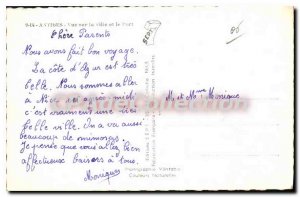 ANTIBES - Vue sur la ville et le Port
Chère Parents
Nous avons fait bon voyage.
La côte d'Azur est très
belle. Nous sommes allés
à Nice cet après midi
c'est vraiment une très
belle ville. On a vu aussi
beaucoup de mimosas.
Je pense que vous allez bien
affectueux baisers à tous.
Monique
M. et Mme
SEPT
86
Photographie Véritable
Couleurs naturelles